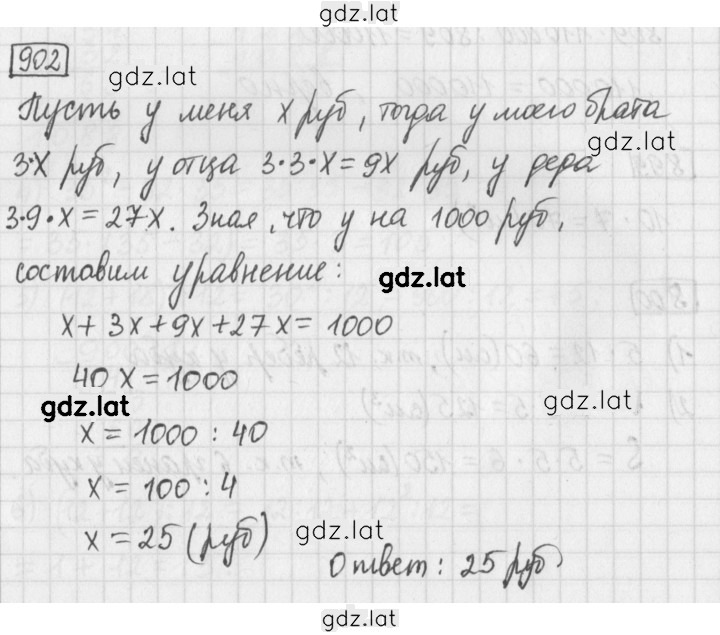 gdz.lat
902
gdz.lat
Пусть у меня x руб, тогда у моего брата
gdz.lat
3·x руб, у отца 3·3·x=9x руб, у деда
3·9·x=27x. Зная, что у на 1000 руб,
составим уравнение:
gdz.lat
x+3x+9x+27x=1000
40x=1000
gdz.lat
gdz.lat
x=1000:40
x=100:4
x=25(руб)
gdz.lat
Ответ: 25 руб
gdz.lat